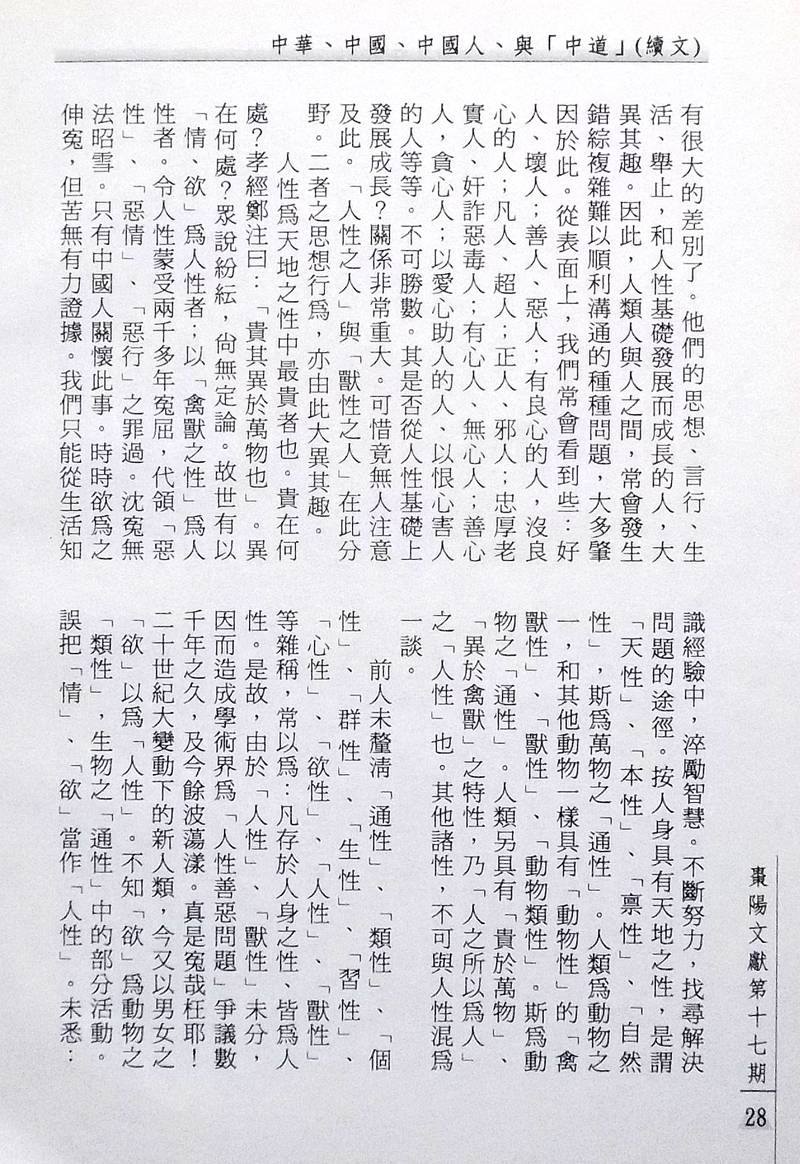 中華、中國、中國人、與「中道」(續文)
有很大的差別了。他們的思想、言行、生
活、舉止，和人性基礎發展而成長的人，大
異其趣。因此，人類人與人之間，常會發生
錯綜複雜難以順利溝通的種種問題，大多肇
因於此。從表面上，我們常會看到些：好
人、壞人；善人、惡人；有良心的人，沒良
心的人；凡人、超人；正人、邪人；忠厚老
實人、奸詐惡毒人；有心人、無心人；善心
人，貪心人；以愛心助人的人、以恨心害人
的人等等。不可勝數。其是否從人性基礎上
發展成長？關係非常重大。可惜竟無人注意
及此。「人性之人」與「獸性之人」在此分
野。二者之思想行為，亦由此大異其趣。
人性為天地之性中最貴者也。貴在何
處？孝經鄭注曰：「貴其異於萬物也」。異
在何處？眾說紛紜，尚無定論。故世有以
「情、欲」為人性者；以「禽獸之性」為人
性者。令人性蒙受兩千多年冤屈，代領「惡
性」、「惡情」、「惡行」之罪過。沈冤無
法昭雪。只有中國人關懷此事。時時欲為之
伸冤，但苦無有力證據。我們只能從生活知
識經驗中，淬勵智慧。不斷努力，找尋解決
問題的途徑。按人身具有天地之性，是謂
「天性」、「本性」、「禀性」、「自然
性」，斯為萬物之「通性」。人類為動物之
一，和其他動物一樣具有「動物性」的「禽
獸性」、「獸性」、「動物類性」。斯為動
物之「通性」。人類另具有「貴於萬物」、
「異於禽獸」之特性，乃「人之所以為人」
之「人性」也。其他諸性，不可與人性混為
一談。
前人未釐清「通性」、「類性」、「個
性」、「群性」、「生性」、「習性」、
「心性」、「欲性」、「人性」、「獸性」
等雜稱，常以為：凡存於人身之性、皆為人
性。是故，由於「人性」、「獸性」未分，
因而造成學術界為「人性善惡問題」爭議數
千年之久，及今餘波蕩漾。真是冤哉枉耶！
二十世紀大變動下的新人類，今又以男女之
「欲」以為「人性」。不知「欲」為動物之
「類性」，生物之「通性」中的部分活動。
誤把「情」、「欲」當作「人性」。未悉：
棗陽文獻第十七期
28